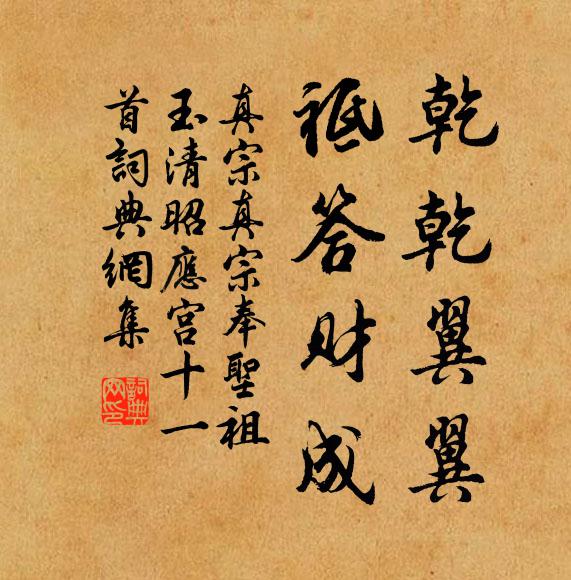 乾乾翼翼
祗答財成
真宗真宗奉聖祖
玉清昭應宮十一
首詞典網集
詞典网印